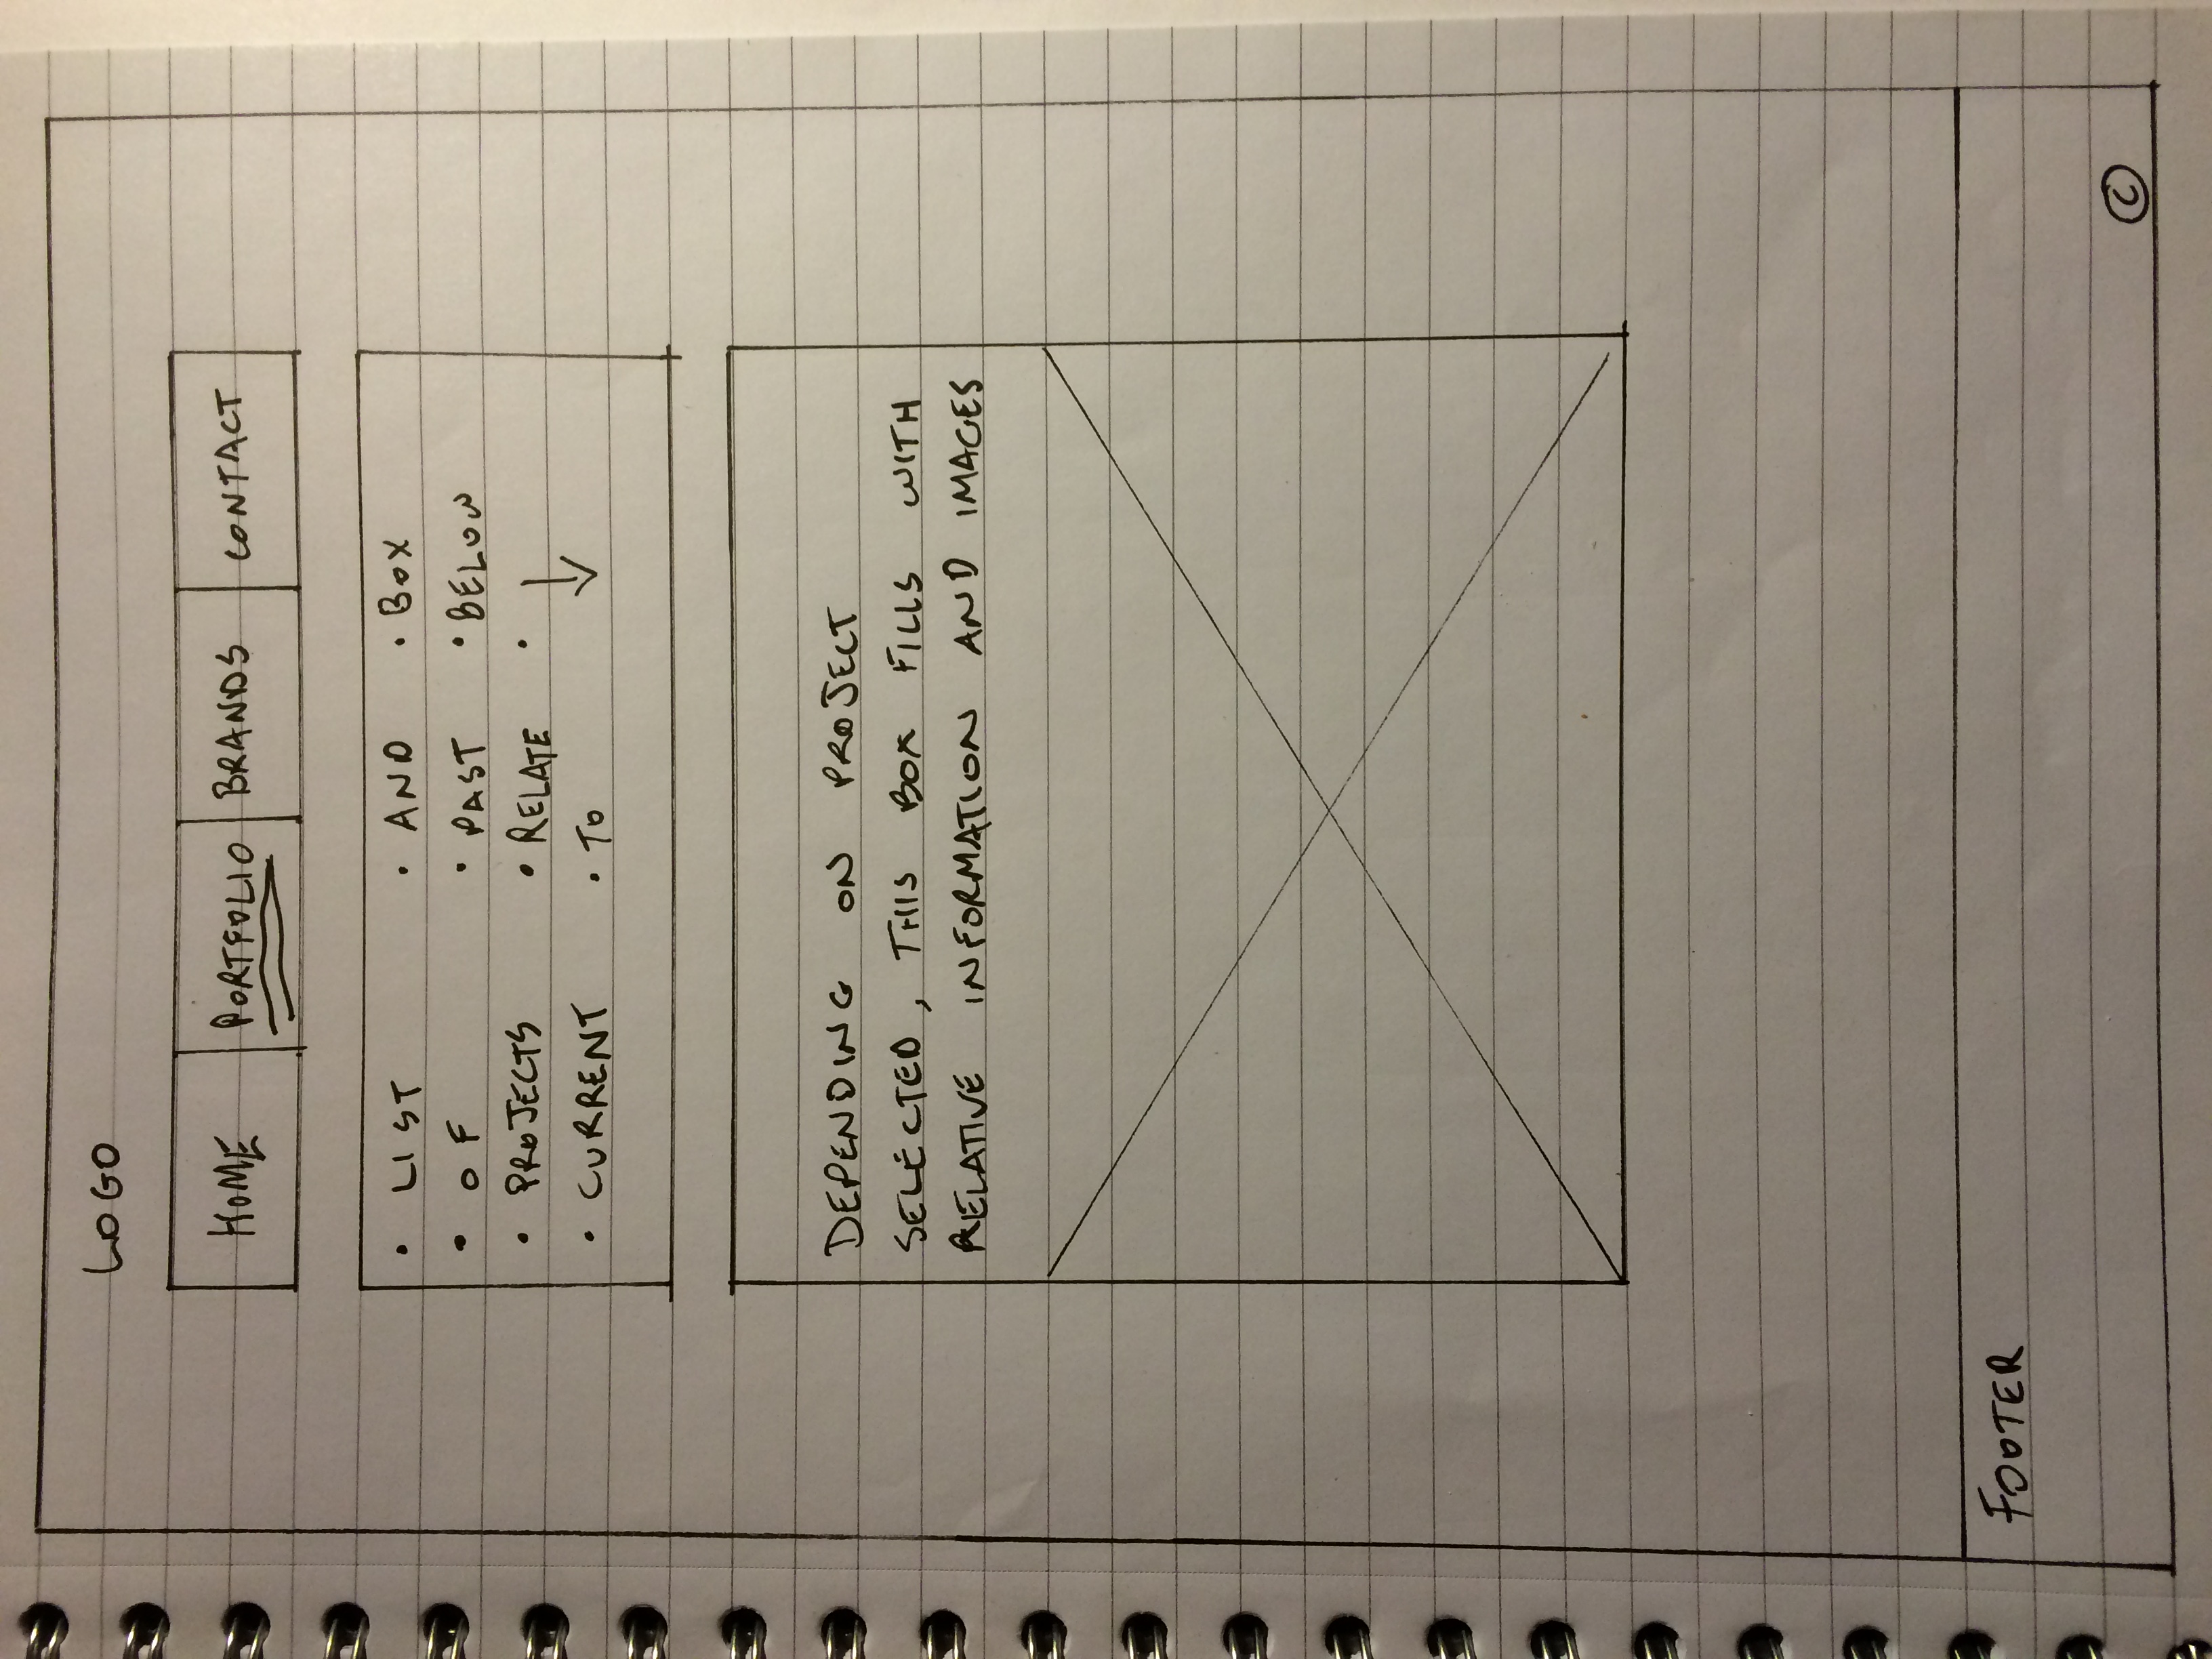 LOGO
HOME PORTFOLIO BRANDS CONTACT
• LIST
• OF
• PROJECTS
• CURRENT
• AND
• PAST
• RELATE
• TO
• BOX
• BELOW
• ↓
DEPENDING ON PROJECT
SELECTED, THIS BOX FILLS WITH
RELATIVE INFORMATION AND IMAGES
FOOTER
©